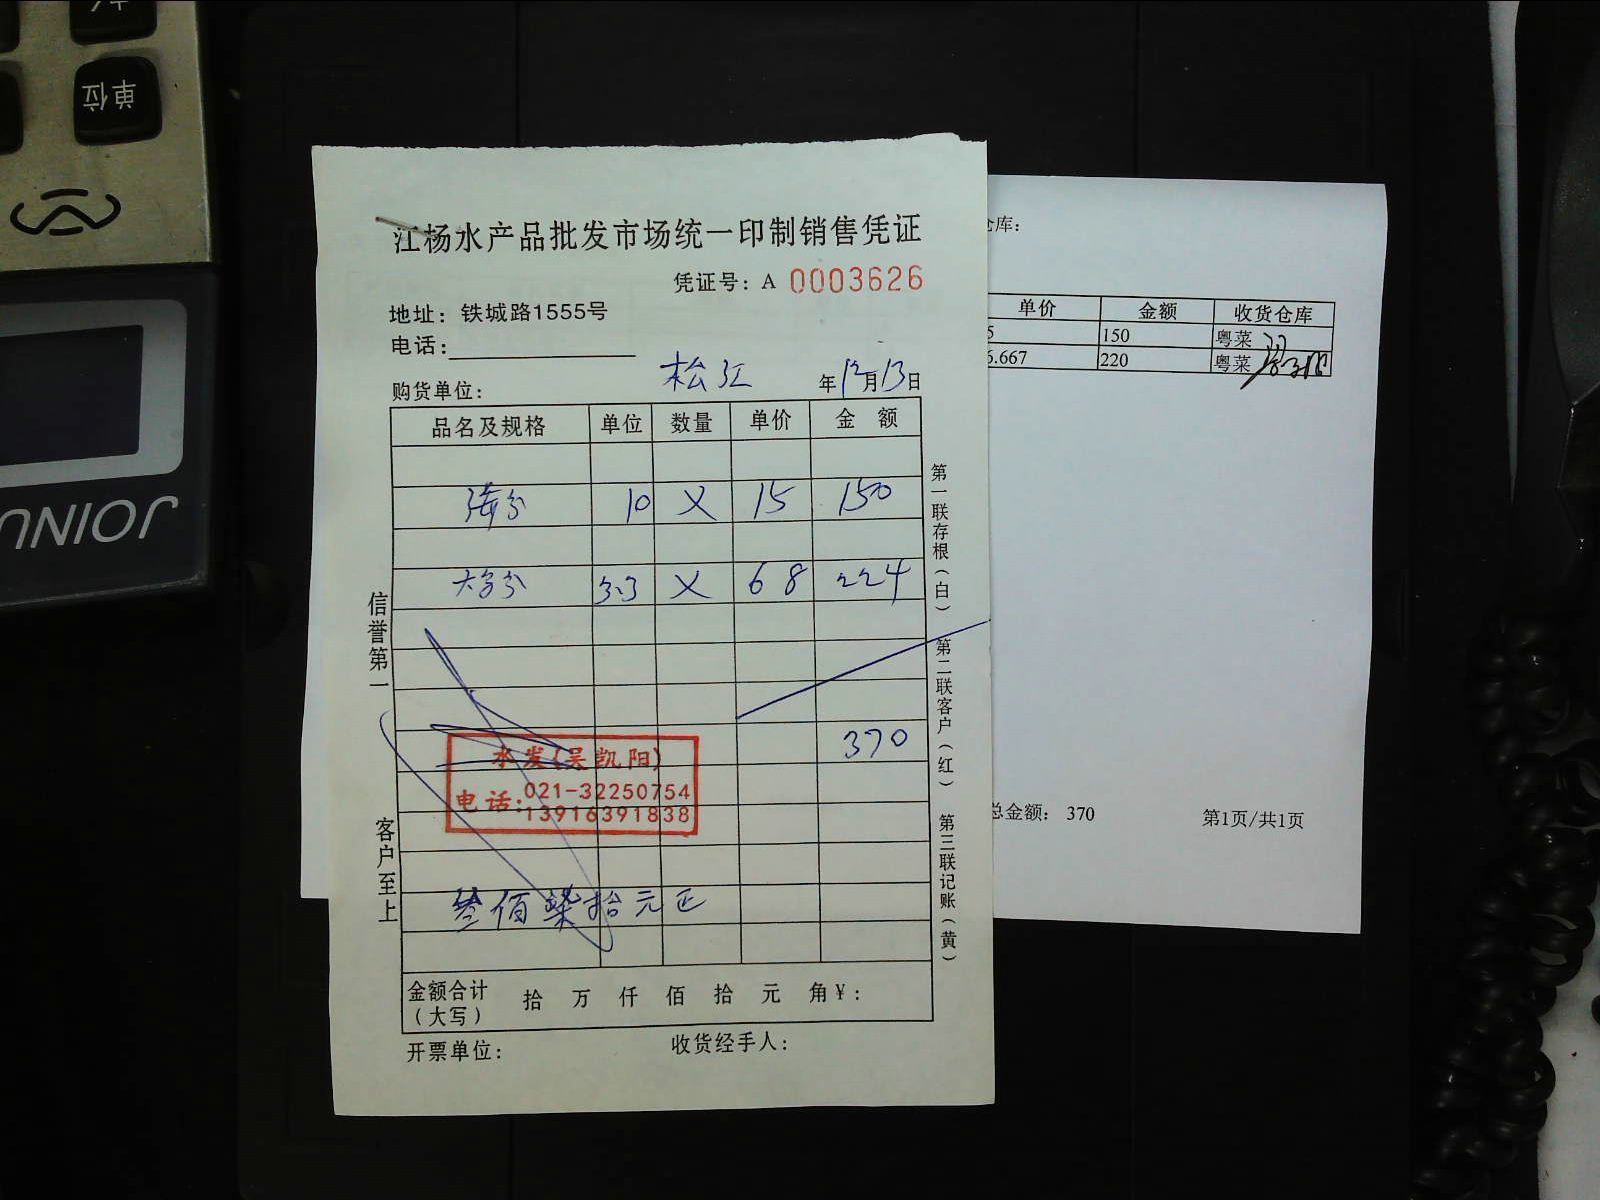 单位
JOINU
江杨水产品批发市场统一印制销售凭证
凭证号：A 0003626
地址：铁城路1555号
电话：
购货单位： 松江 年12月13日
品名及规格 单位 数量 单价 金 额
10 X 15 150
3.3 X 68 224
370
水发(吴凯阳)
电话：021-32250754
13916391838
叁佰柒拾元正
金额合计（大写） 拾 万 仟 佰 拾 元 角￥：
开票单位： 收货经手人：
信誉第一
客户至上
第一联存根（白） 第二联客户（红） 第三联记账（黄）
仓库：
单价 金额 收货仓库
5 150 粤菜
6.667 220 粤菜
总金额： 370 第1页/共1页